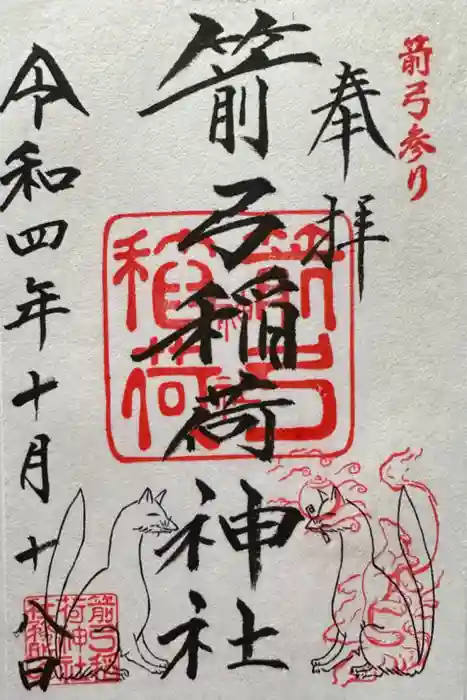 箭弓参り
奉拝
箭弓稲荷神社
令和四年十月十八日
箭弓
稲荷